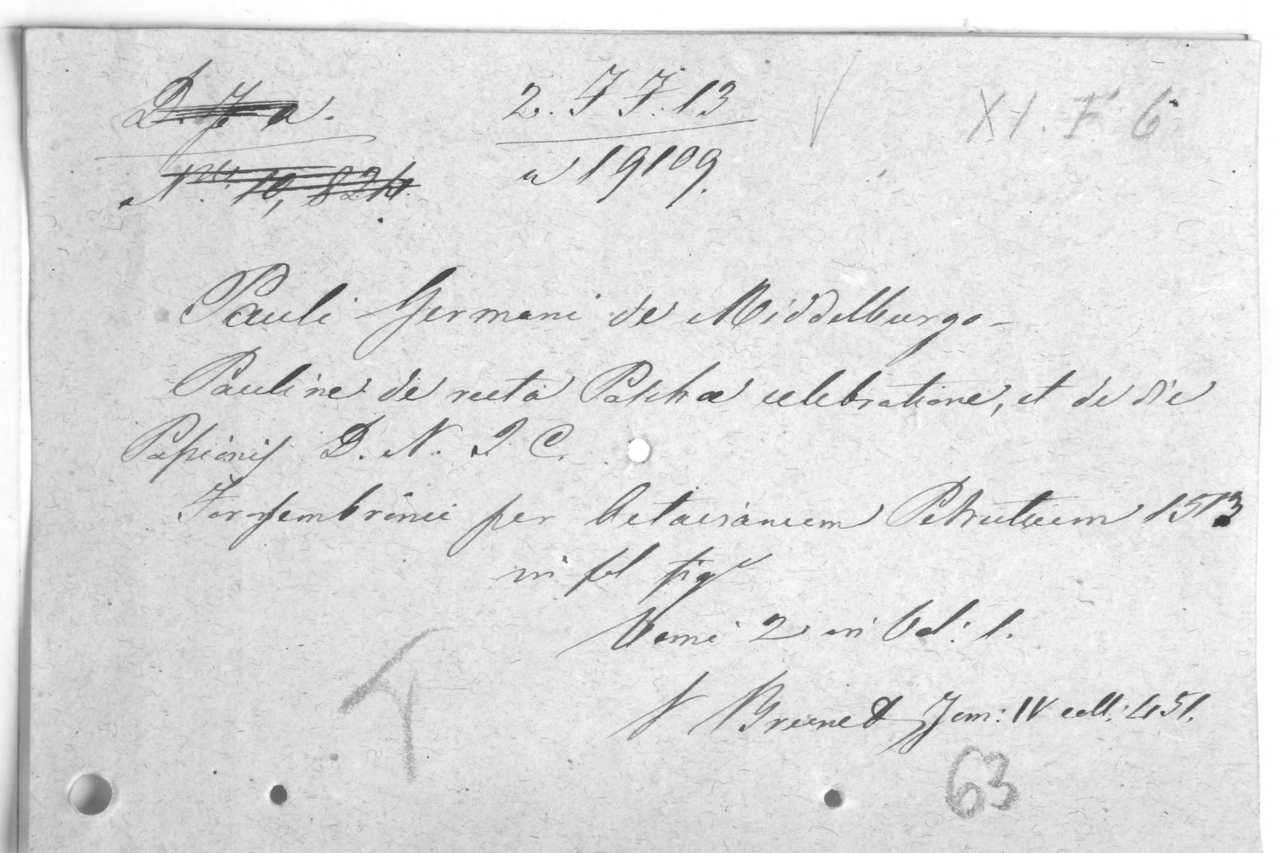 D. J a. 2. F F. 13 XI. F 6
Nro. 10,824. a 19109.
Pauli Germani de Middelburgo -
Pauline de recta Paschæ celebratione, et de die
Passionis D. N. I C.
Forosembronii per Octavianum Petrutium 1513
in fol figr
Tomi 2 in Vol: 1.
V Brunet Tom: IV coll: 451.
T
63